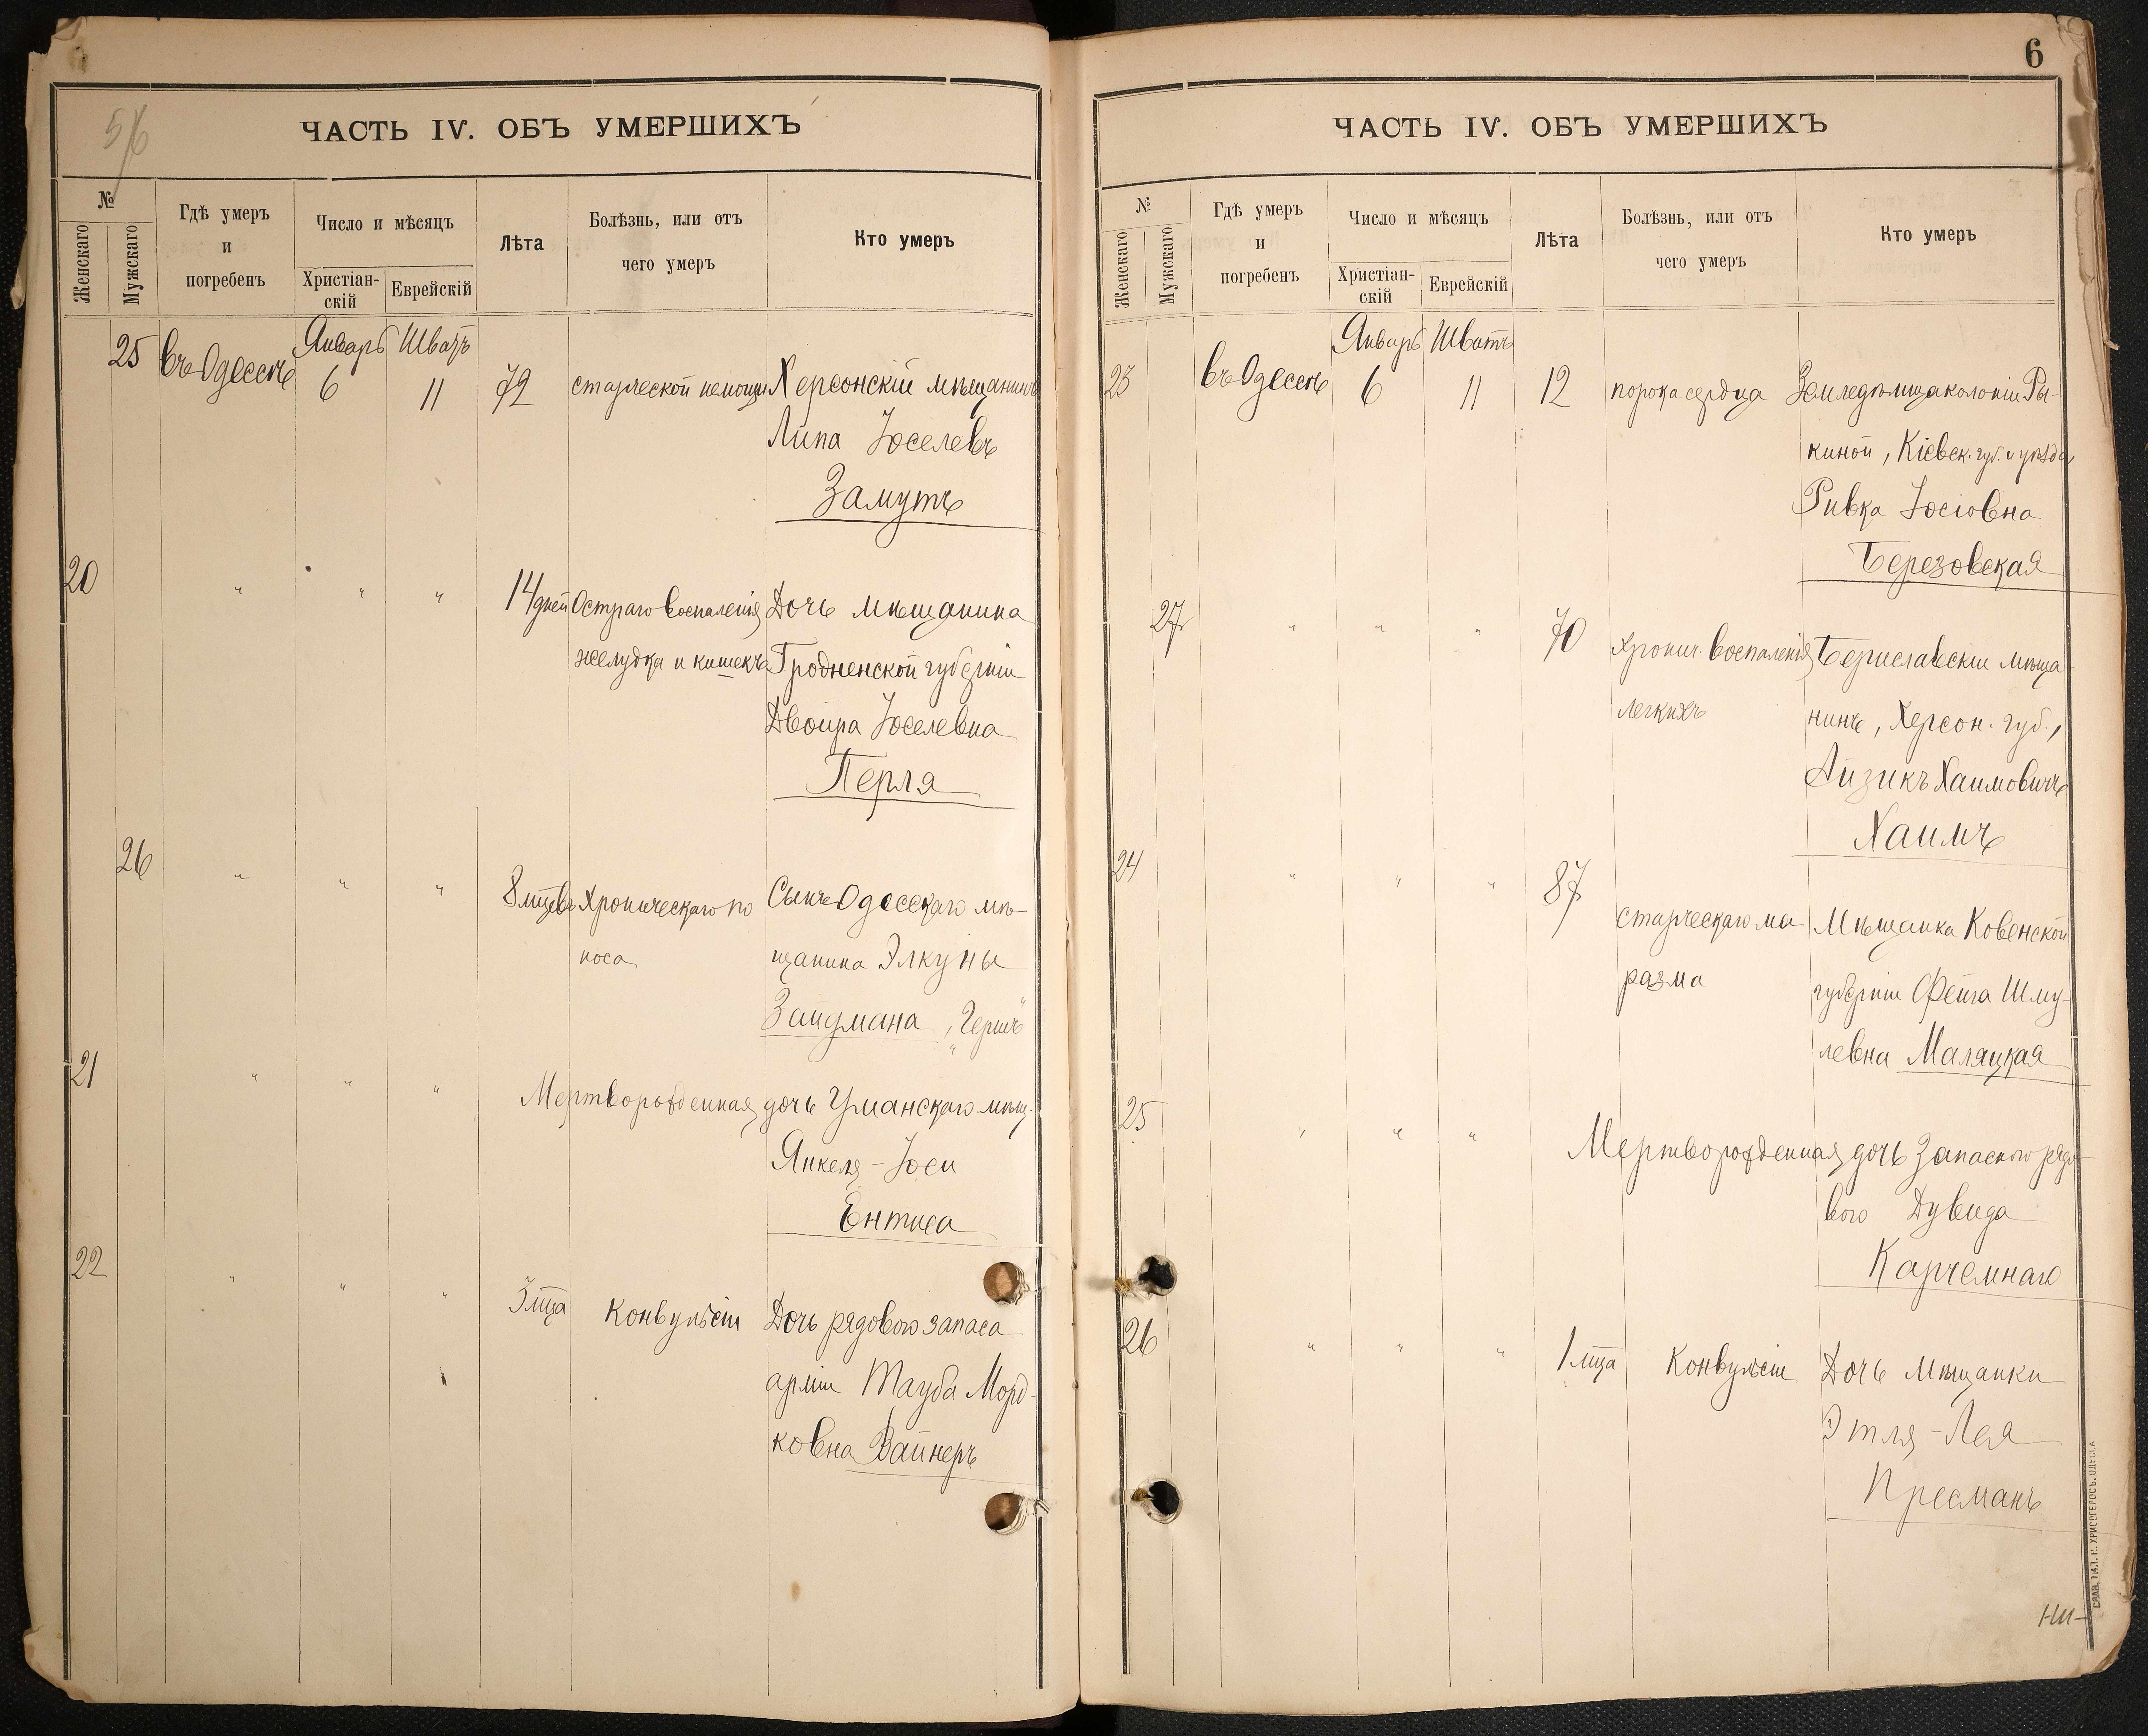 6
5/6
ЧАСТЬ IV. ОБЪ УМЕРШИХЪ
№
Женскаго
Мужскаго
Гдѣ умеръ
и
погребенъ
Число и мѣсяцъ
Христіан-
скій
Еврейскій
Лѣта
Болѣзнь, или отъ
чего умеръ
Кто умеръ
Январь Шватъ
25 въ Одессѣ 6 11 72 старческой немощи Херсонскій мѣщанинъ
Липа Іоселевъ
Замутъ
20 " " " 14 дней Остраго воспаленія Дочь мѣщанина
желудка и кишекъ Гродненской губерніи
Двойра Іоселевна
Перля
26 " " " 8 мцевъ Хроническаго по Сынъ Одесскаго мѣ-
носа щанина Элкуны
Зайдмана „Гершъ"
21 " " " Мертворожденная дочь Уманскаго мѣщ.
Янкеля-Іоси
Ентиса
22 " " " 3 мца Конвульсіи Дочь рядового запаса
арміи Тауба Морд-
ковна Вайнеръ
ЧАСТЬ IV. ОБЪ УМЕРШИХЪ
№
Женскаго
Мужскаго
Гдѣ умеръ
и
погребенъ
Число и мѣсяцъ
Христіан-
скій
Еврейскій
Лѣта
Болѣзнь, или отъ
чего умеръ
Кто умеръ
Январь Шватъ
23 въ Одессѣ 6 11 12 порока сердца Земледѣлица колоніи Ры-
киной, Кіевск. губ. и уѣзда
Ривка Іосіовна
Березовская
27 " " " 70 Хронич. воспаленія Бериславскій мѣща
легкихъ нинъ, Херсон. губ.,
Айзикъ Хаимовичъ
Хаимъ
24 " " " 87 старческаго ма Мѣщанка Ковенской
разма губерніи Фейга Шму-
левна Маляцкая
25 " " " Мертворожденная дочь Запасного рядо-
вого Дувида
Карчемнаго
26 " " " 1 мца Конвульсіи Дочь Мѣщанки
Этля-Лея
Пресманъ
СЛАВ. ТИП. Н. ХРИСОГЕЛОСЪ. ОДЕССА